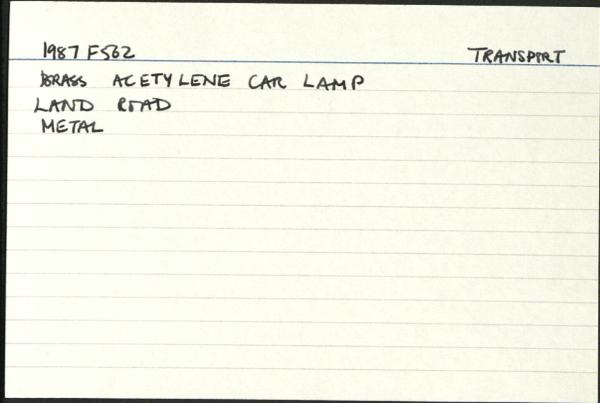 1987 F562 TRANSPORT
BRASS ACETYLENE CAR LAMP
LAND ROAD
METAL